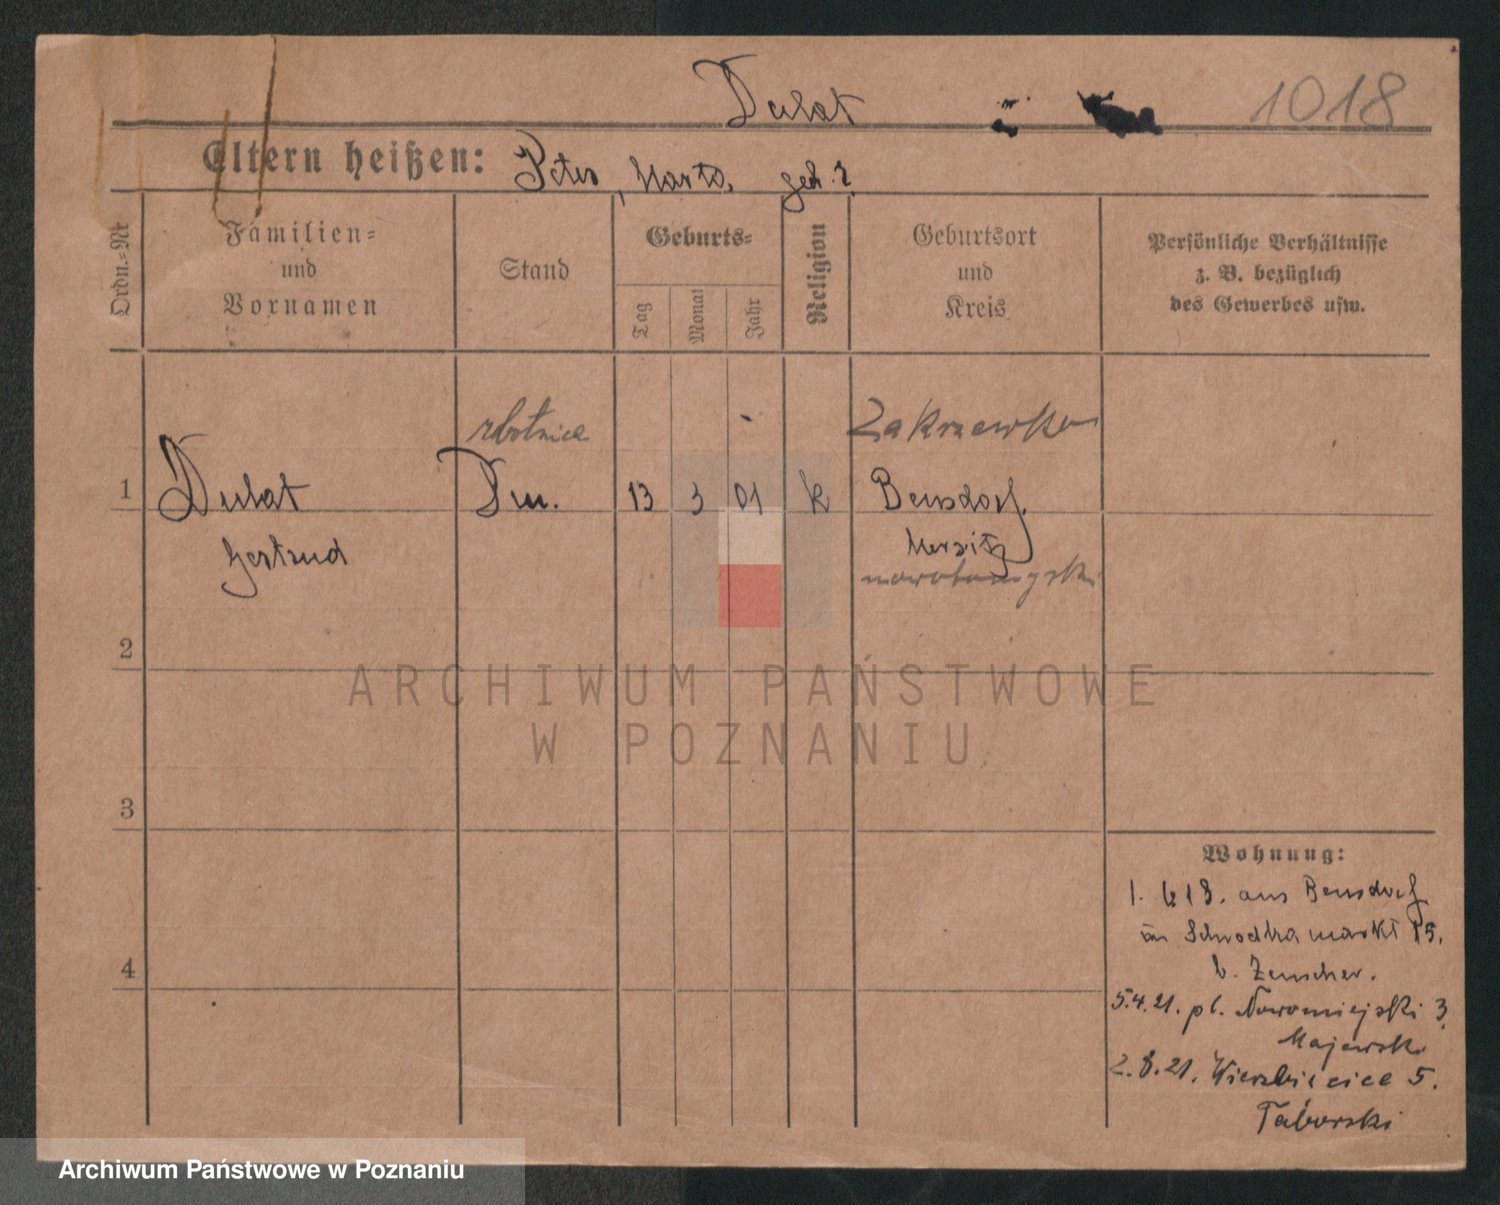 Dulat
1018
Eltern heißen: Peter, Marta, geb. ?
Ordn.-Nr
Familien-
und
Vornamen
Stand
Geburts-
Tag
Monat
Jahr
Religion
Geburtsort
und
Kreis
Persönliche Verhältnisse
z. B. bezüglich
des Gewerbes usw.
robotnica
Zakrzewko
1 Dulat Dm. 13 3 01 k Bensdorf.
Gertrud
nowotomyski
2
3
4
Wohnung:
aus Bensdorf
15.
b. Zenscher.
5.4.21. pl. Nowomiejski 3
Majewski
2.8.21. Wierzbięcice 5.
Taborski
ARCHIWUM PAŃSTWOWE
W POZNANIU
Archiwum Państwowe w Poznaniu